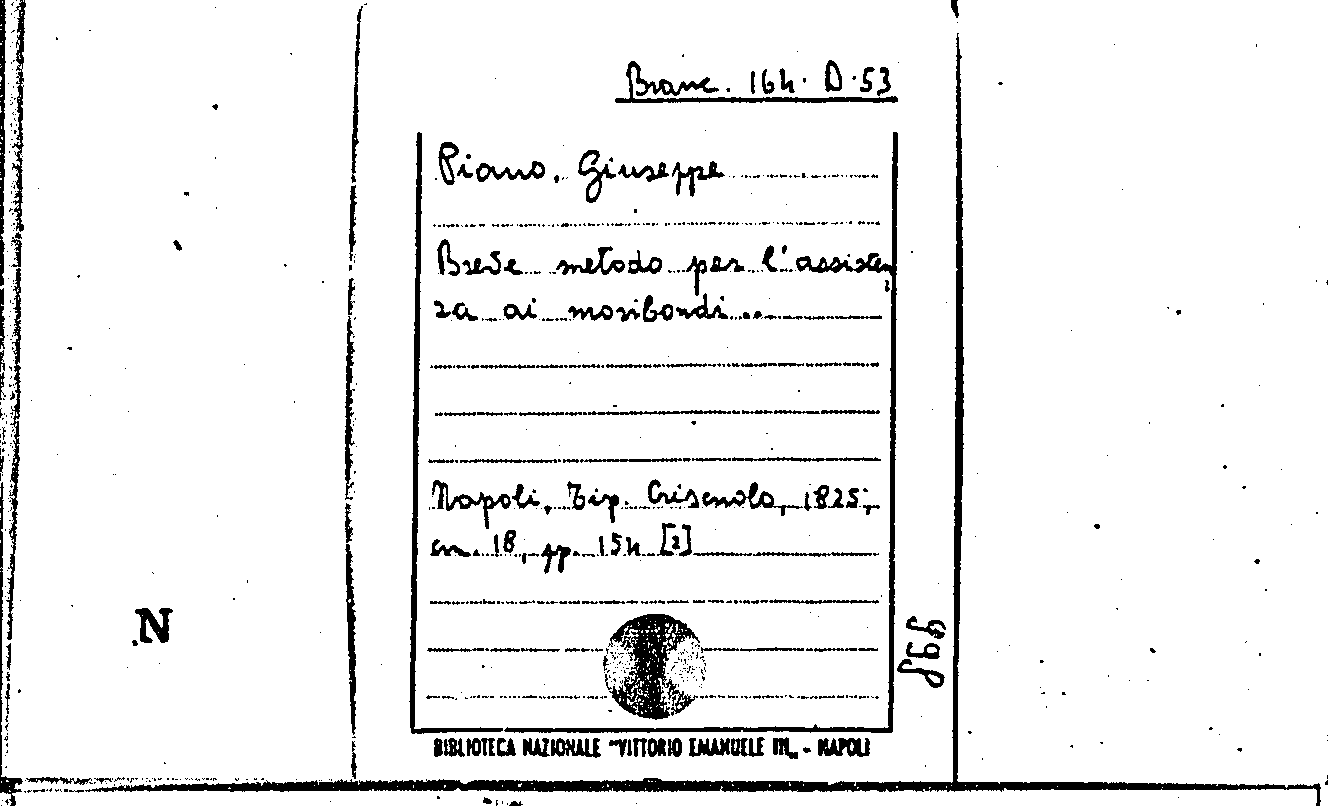 Branc. 164. D. 53
Piano, Giuseppe
Breve metodo per l'assisten
za ai moribondi...
Napoli, Tip. Criscuolo, 1825;
cm. 18, pp. 154 [2]
BIBLIOTECA NAZIONALE "VITTORIO EMANUELE III„ - NAPOLI
N